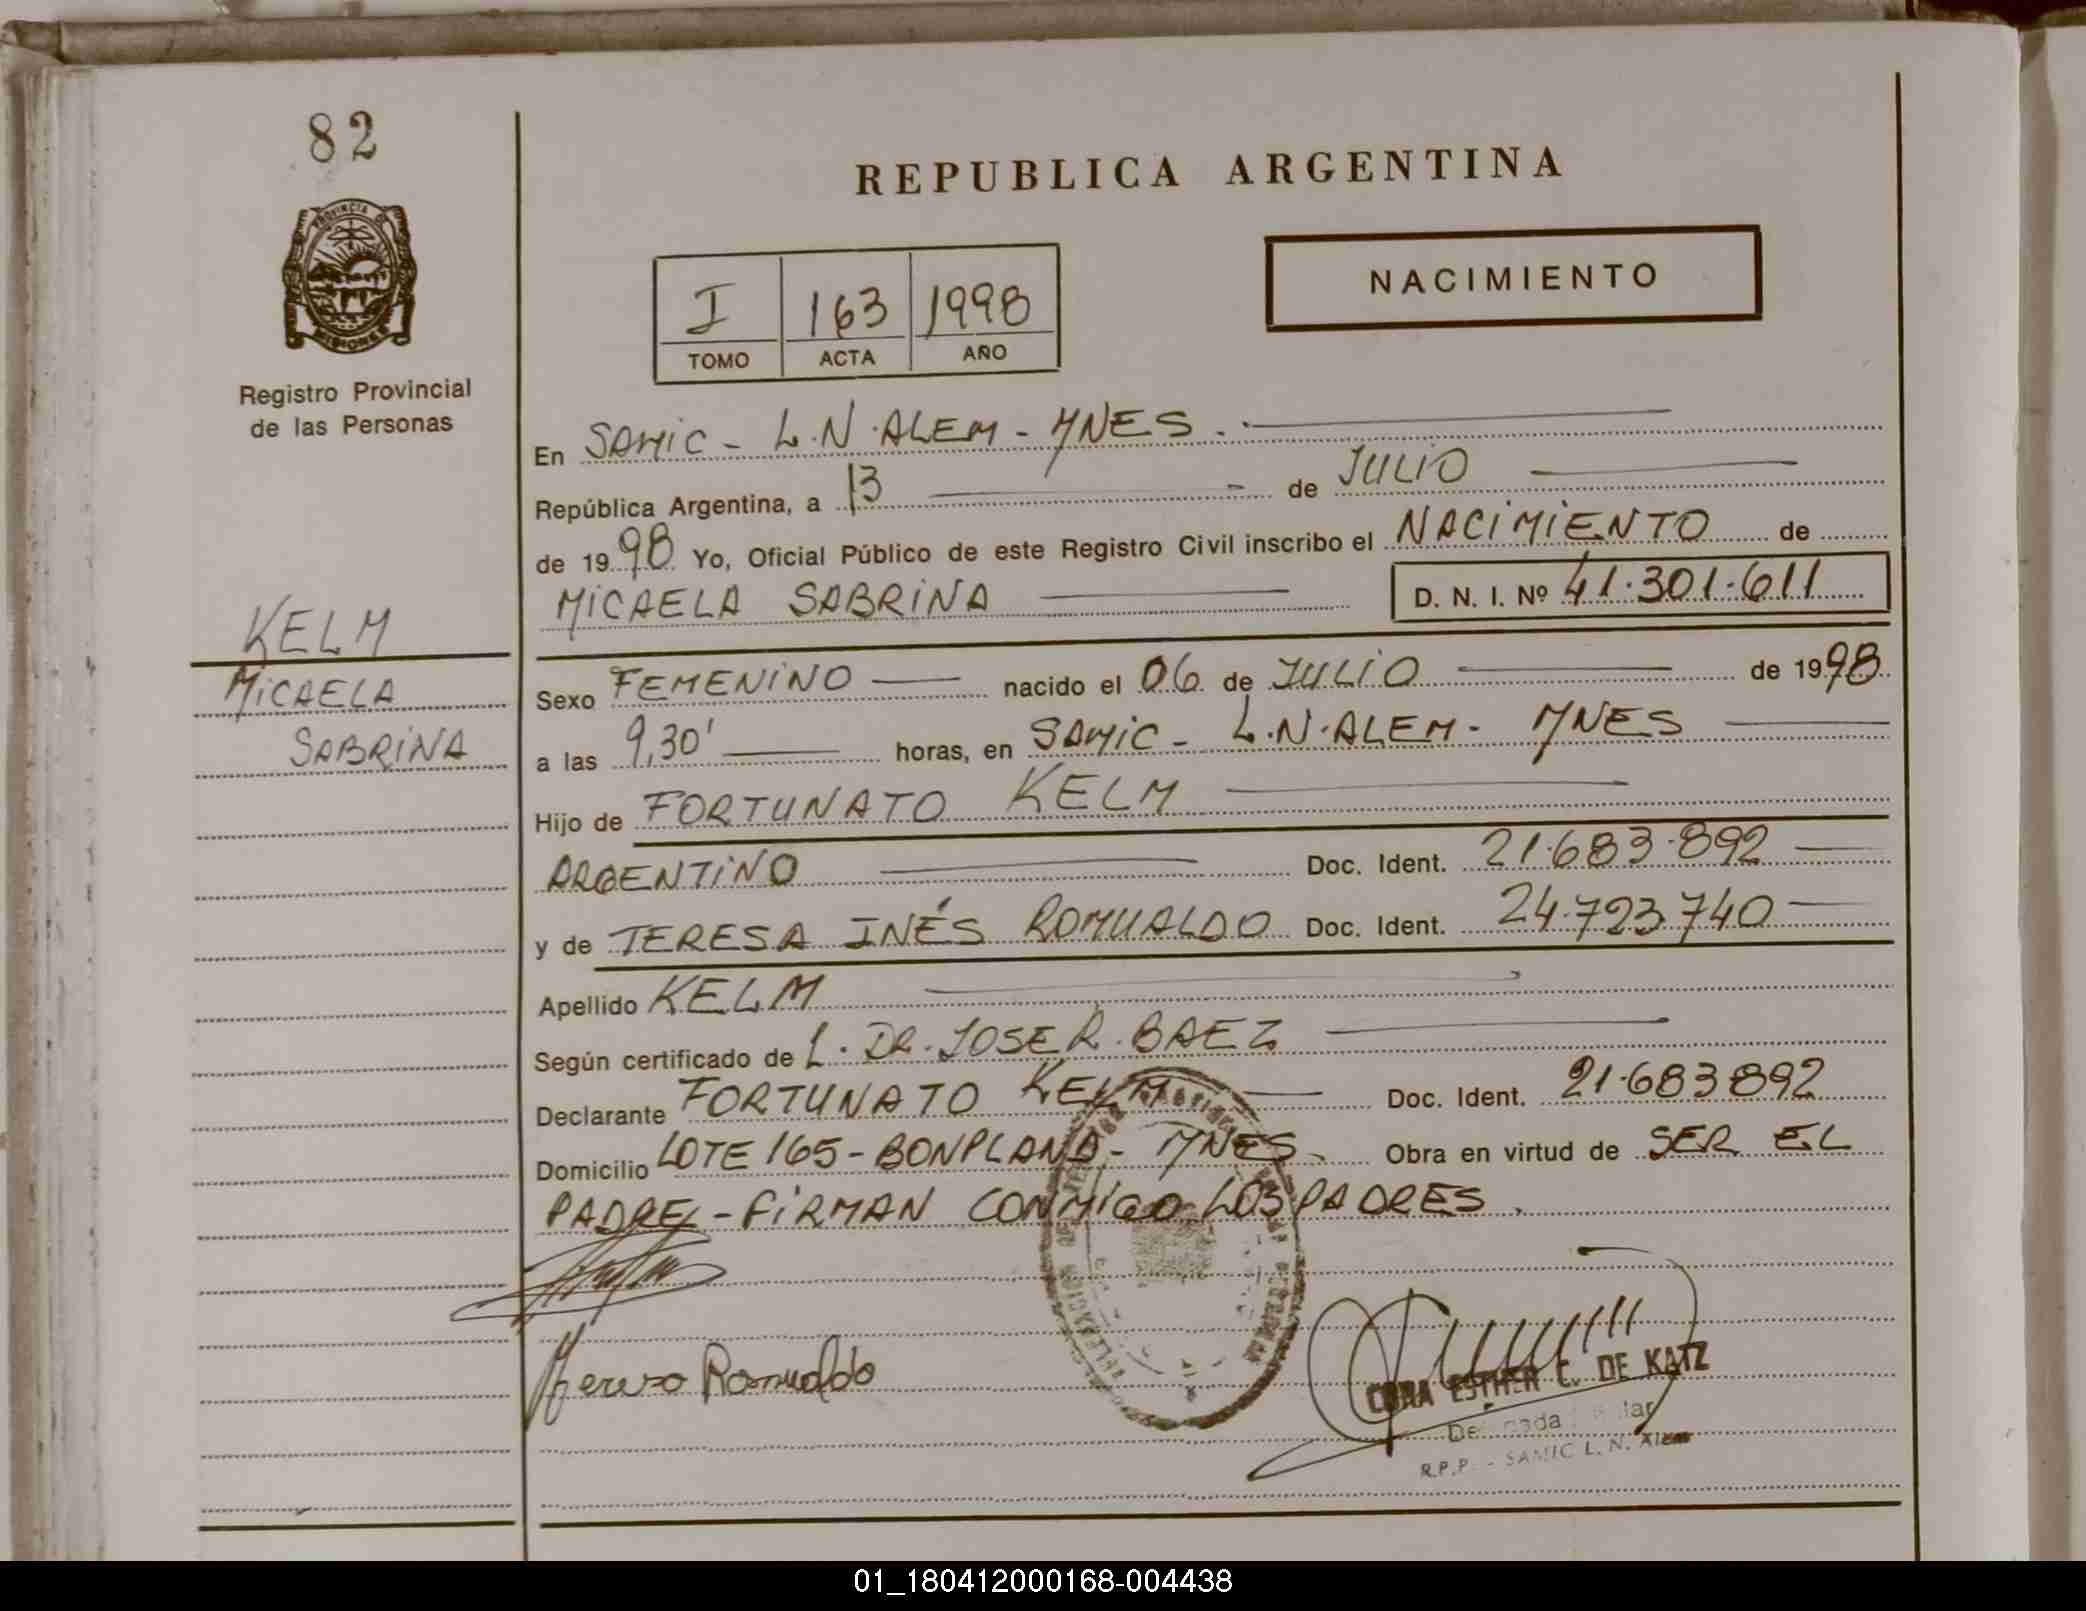 82
PROVINCIA DE
MISIONES
Registro Provincial
de las Personas
KELM
MICAELA
SABRINA
REPUBLICA ARGENTINA
NACIMIENTO
I 163 1998
TOMO ACTA AÑO
En SAMIC - L.N.ALEM - MNES.
República Argentina, a 13 de JULIO
de 1998 Yo, Oficial Público de este Registro Civil inscribo el NACIMIENTO de
MICAELA SABRINA D. N. I. Nº 41.301.611
Sexo FEMENINO nacido el 06 de JULIO de 1998
a las 9,30' horas, en SAMIC - L.N.ALEM - MNES
Hijo de FORTUNATO KELM
ARGENTINO Doc. Ident. 21.683.892
y de TERESA INÉS ROMUALDO Doc. Ident. 24.723.740
Apellido KELM
Según certificado de L. DR. JOSE R. BAEZ
Declarante FORTUNATO KELM Doc. Ident. 21.683892
Domicilio LOTE 165 - BONPLAND - MNES. Obra en virtud de SER EL
PADRE - FIRMAN CONMIGO LOS PADRES.
Romualdo
ESTHER C. DE KATZ
R.P.P. - SAMIC L. N. Alem
01_180412000168-004438